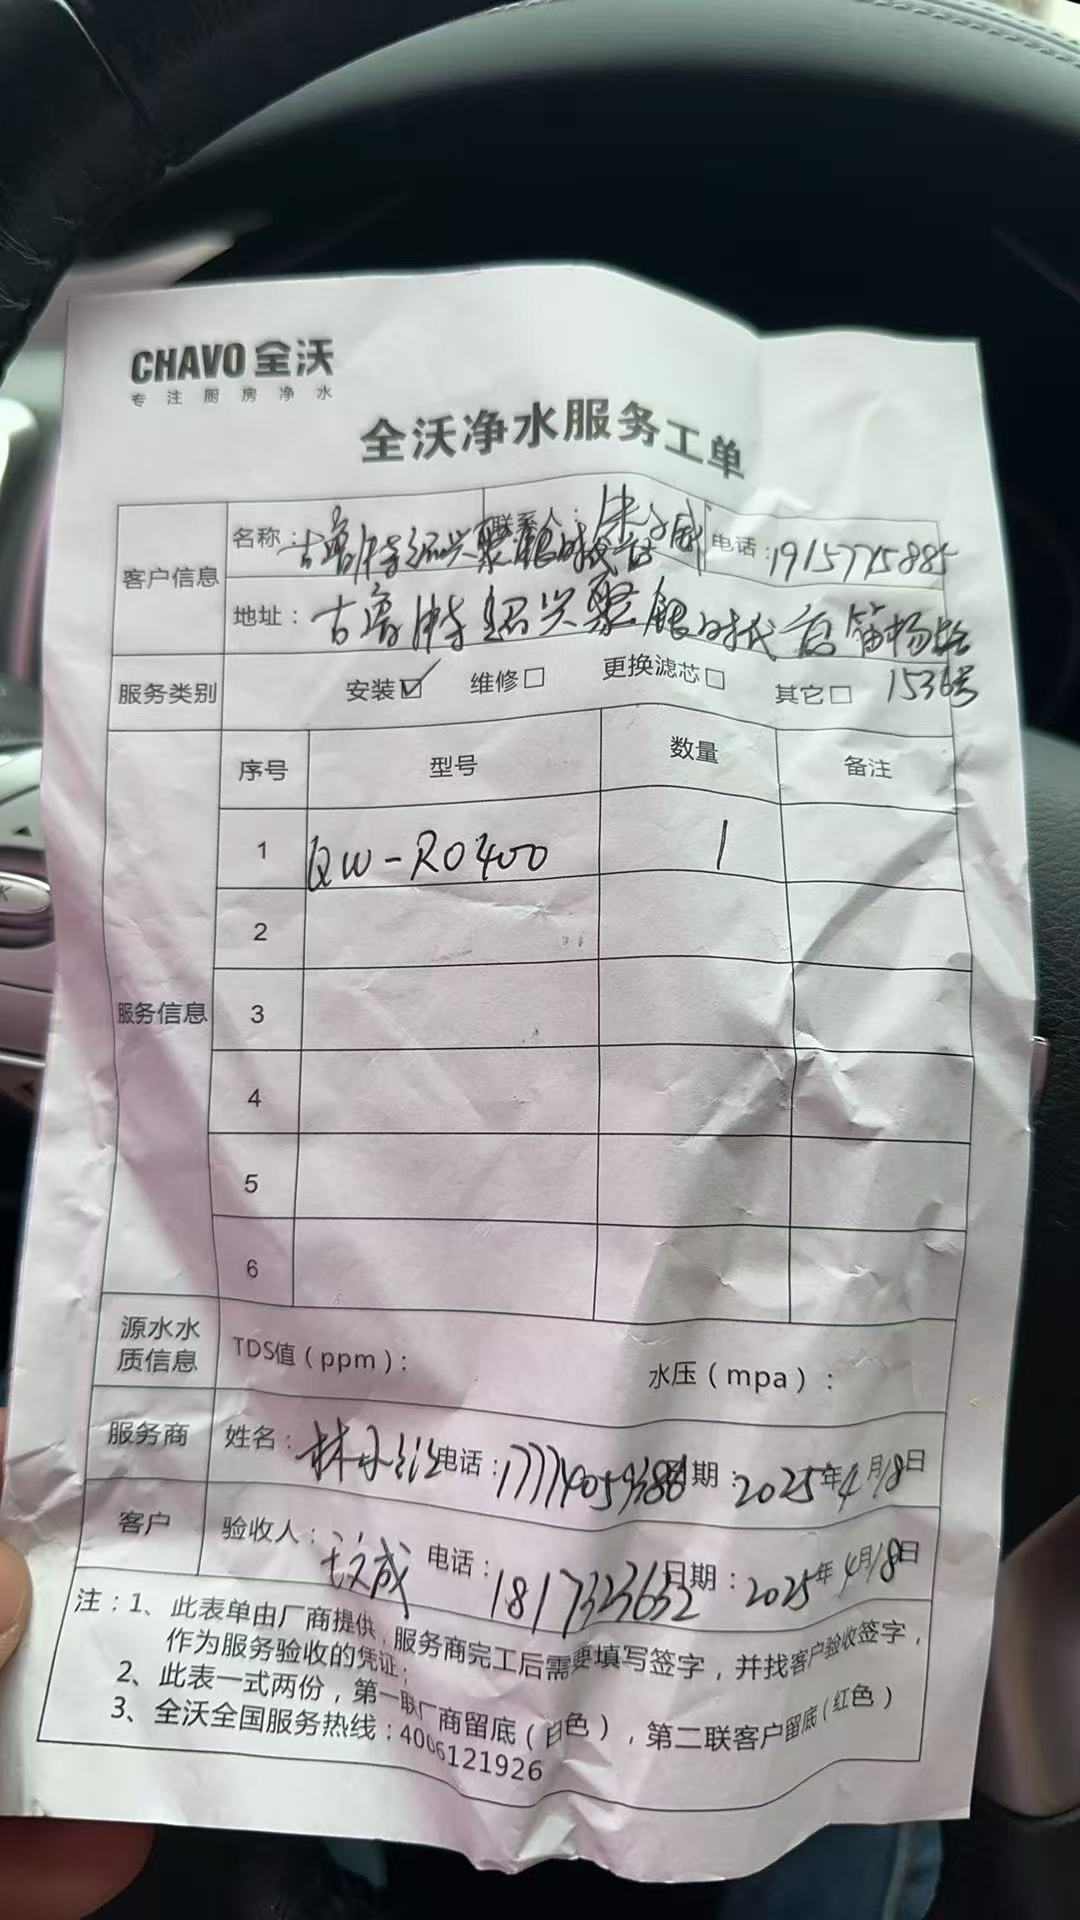 CHAVO 全沃
专注厨房净水
全沃净水服务工单
客户信息 名称：古 特绍兴聚银时代店 联系人：朱 成 电话：19157715885
地址：古 特绍兴聚银时代店 笛扬路
1536号
服务类别 安装☑ 维修□ 更换滤芯□ 其它□
服务信息 序号 型号 数量 备注
1 QW-RO400 1
2
3
4
5
6
源水水质信息 TDS值（ppm）： 水压（mpa）：
服务商 姓名：林 电话：17774059388 日期：2025年4月18日
客户 验收人： 成 电话：1817323652 日期：2025年4月18日
注：1、此表单由厂商提供，服务商完工后需要填写签字，并找客户验收签字，
作为服务验收的凭证；
2、此表一式两份，第一联厂商留底（白色），第二联客户留底（红色）
3、全沃全国服务热线：4006121926